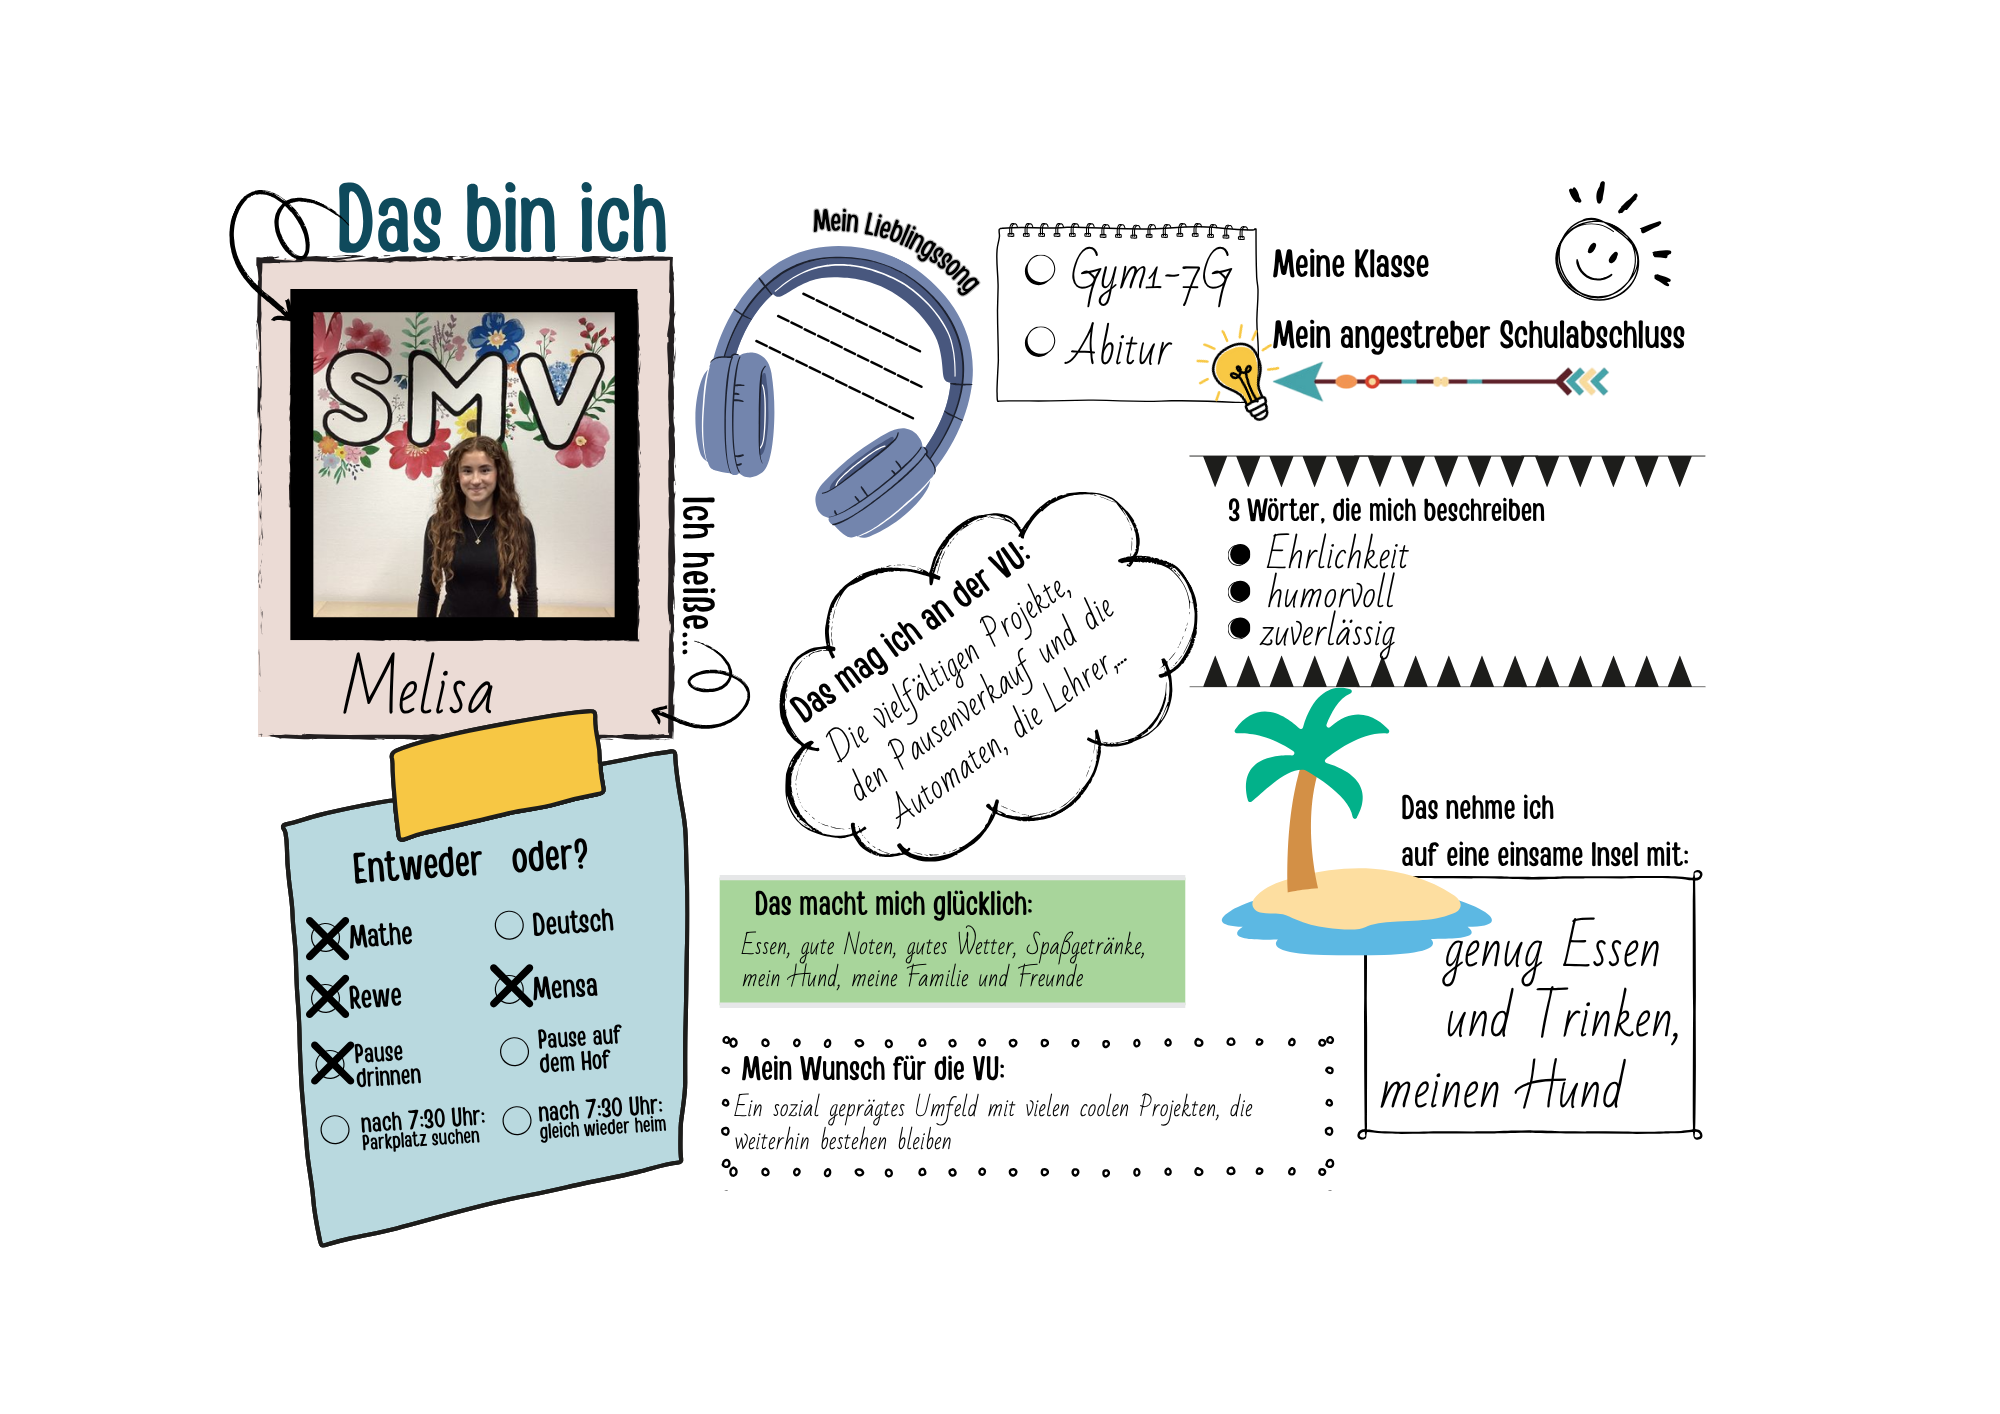 Das bin ich
SMV
Ich heiße...
Melisa
Entweder oder?
Mathe
Deutsch
Rewe
Mensa
Pause
drinnen
Pause auf
dem Hof
nach 7:30 Uhr:
Parkplatz suchen
nach 7:30 Uhr:
gleich wieder heim
Mein Lieblingssong
Gym1-7G
Abitur
Meine Klasse
Mein angestreber Schulabschluss
Das mag ich an der VU:
Die vielfältigen Projekte,
den Pausenverkauf und die
Automaten, die Lehrer,...
3 Wörter, die mich beschreiben
Ehrlichkeit
humorvoll
zuverlässig
Das macht mich glücklich:
Essen, gute Noten, gutes Wetter, Spaßgetränke,
mein Hund, meine Familie und Freunde
Das nehme ich
auf eine einsame Insel mit:
genug Essen
und Trinken,
meinen Hund
Mein Wunsch für die VU:
Ein sozial geprägtes Umfeld mit vielen coolen Projekten, die
weiterhin bestehen bleiben